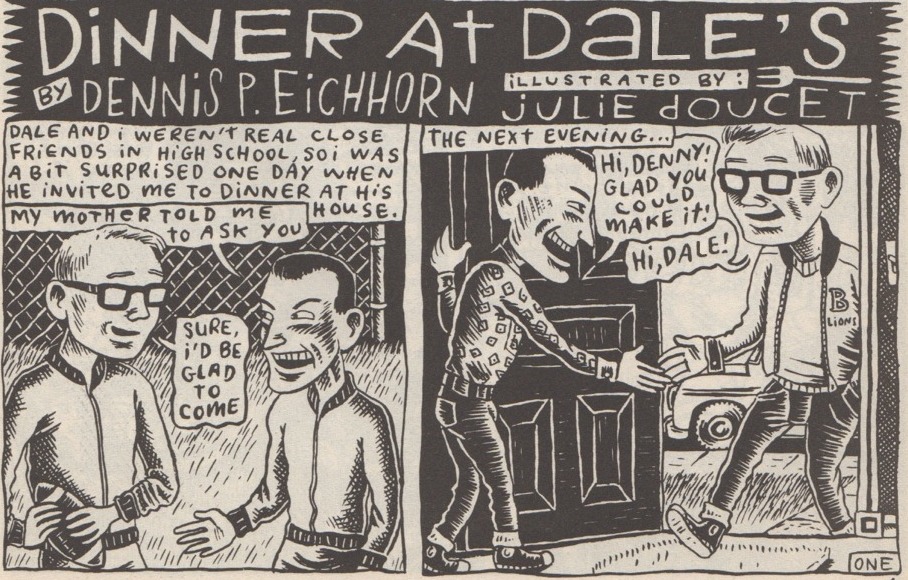 DiNNER At DaLE'S
BY DENNiS P. EiCHHORN
iLLUSTRATED BY:
JULiE dOUCET
DALE AND i WEREN'T REAL CLOSE
FRiENDS iN HiGH SCHOOL, SO i WAS
A BiT SURPRiSED ONE DAY WHEN
HE iNViTED ME TO DiNNER AT HiS
HOUSE.
MY MOTHER TOLD ME
to ASK YOU
SURE,
i'D BE
GLAD
TO
COME
THE NEXT EVENiNG...
Hi, DENNY!
GLAD YOU
COULD
MAKE iT!
Hi, DALE!
B
LIONS
ONE